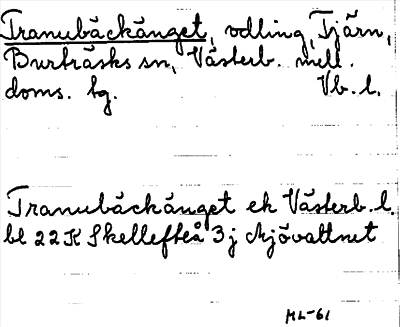 Tranubäckänget, odling, Tjärn,
Burträsks sn, Västerb. mell.
doms. tg. Vb. l.
Tranubäckänget ek Västerb. l.
bl 22K Skellefteå 3j Mjövattnet
ML-61